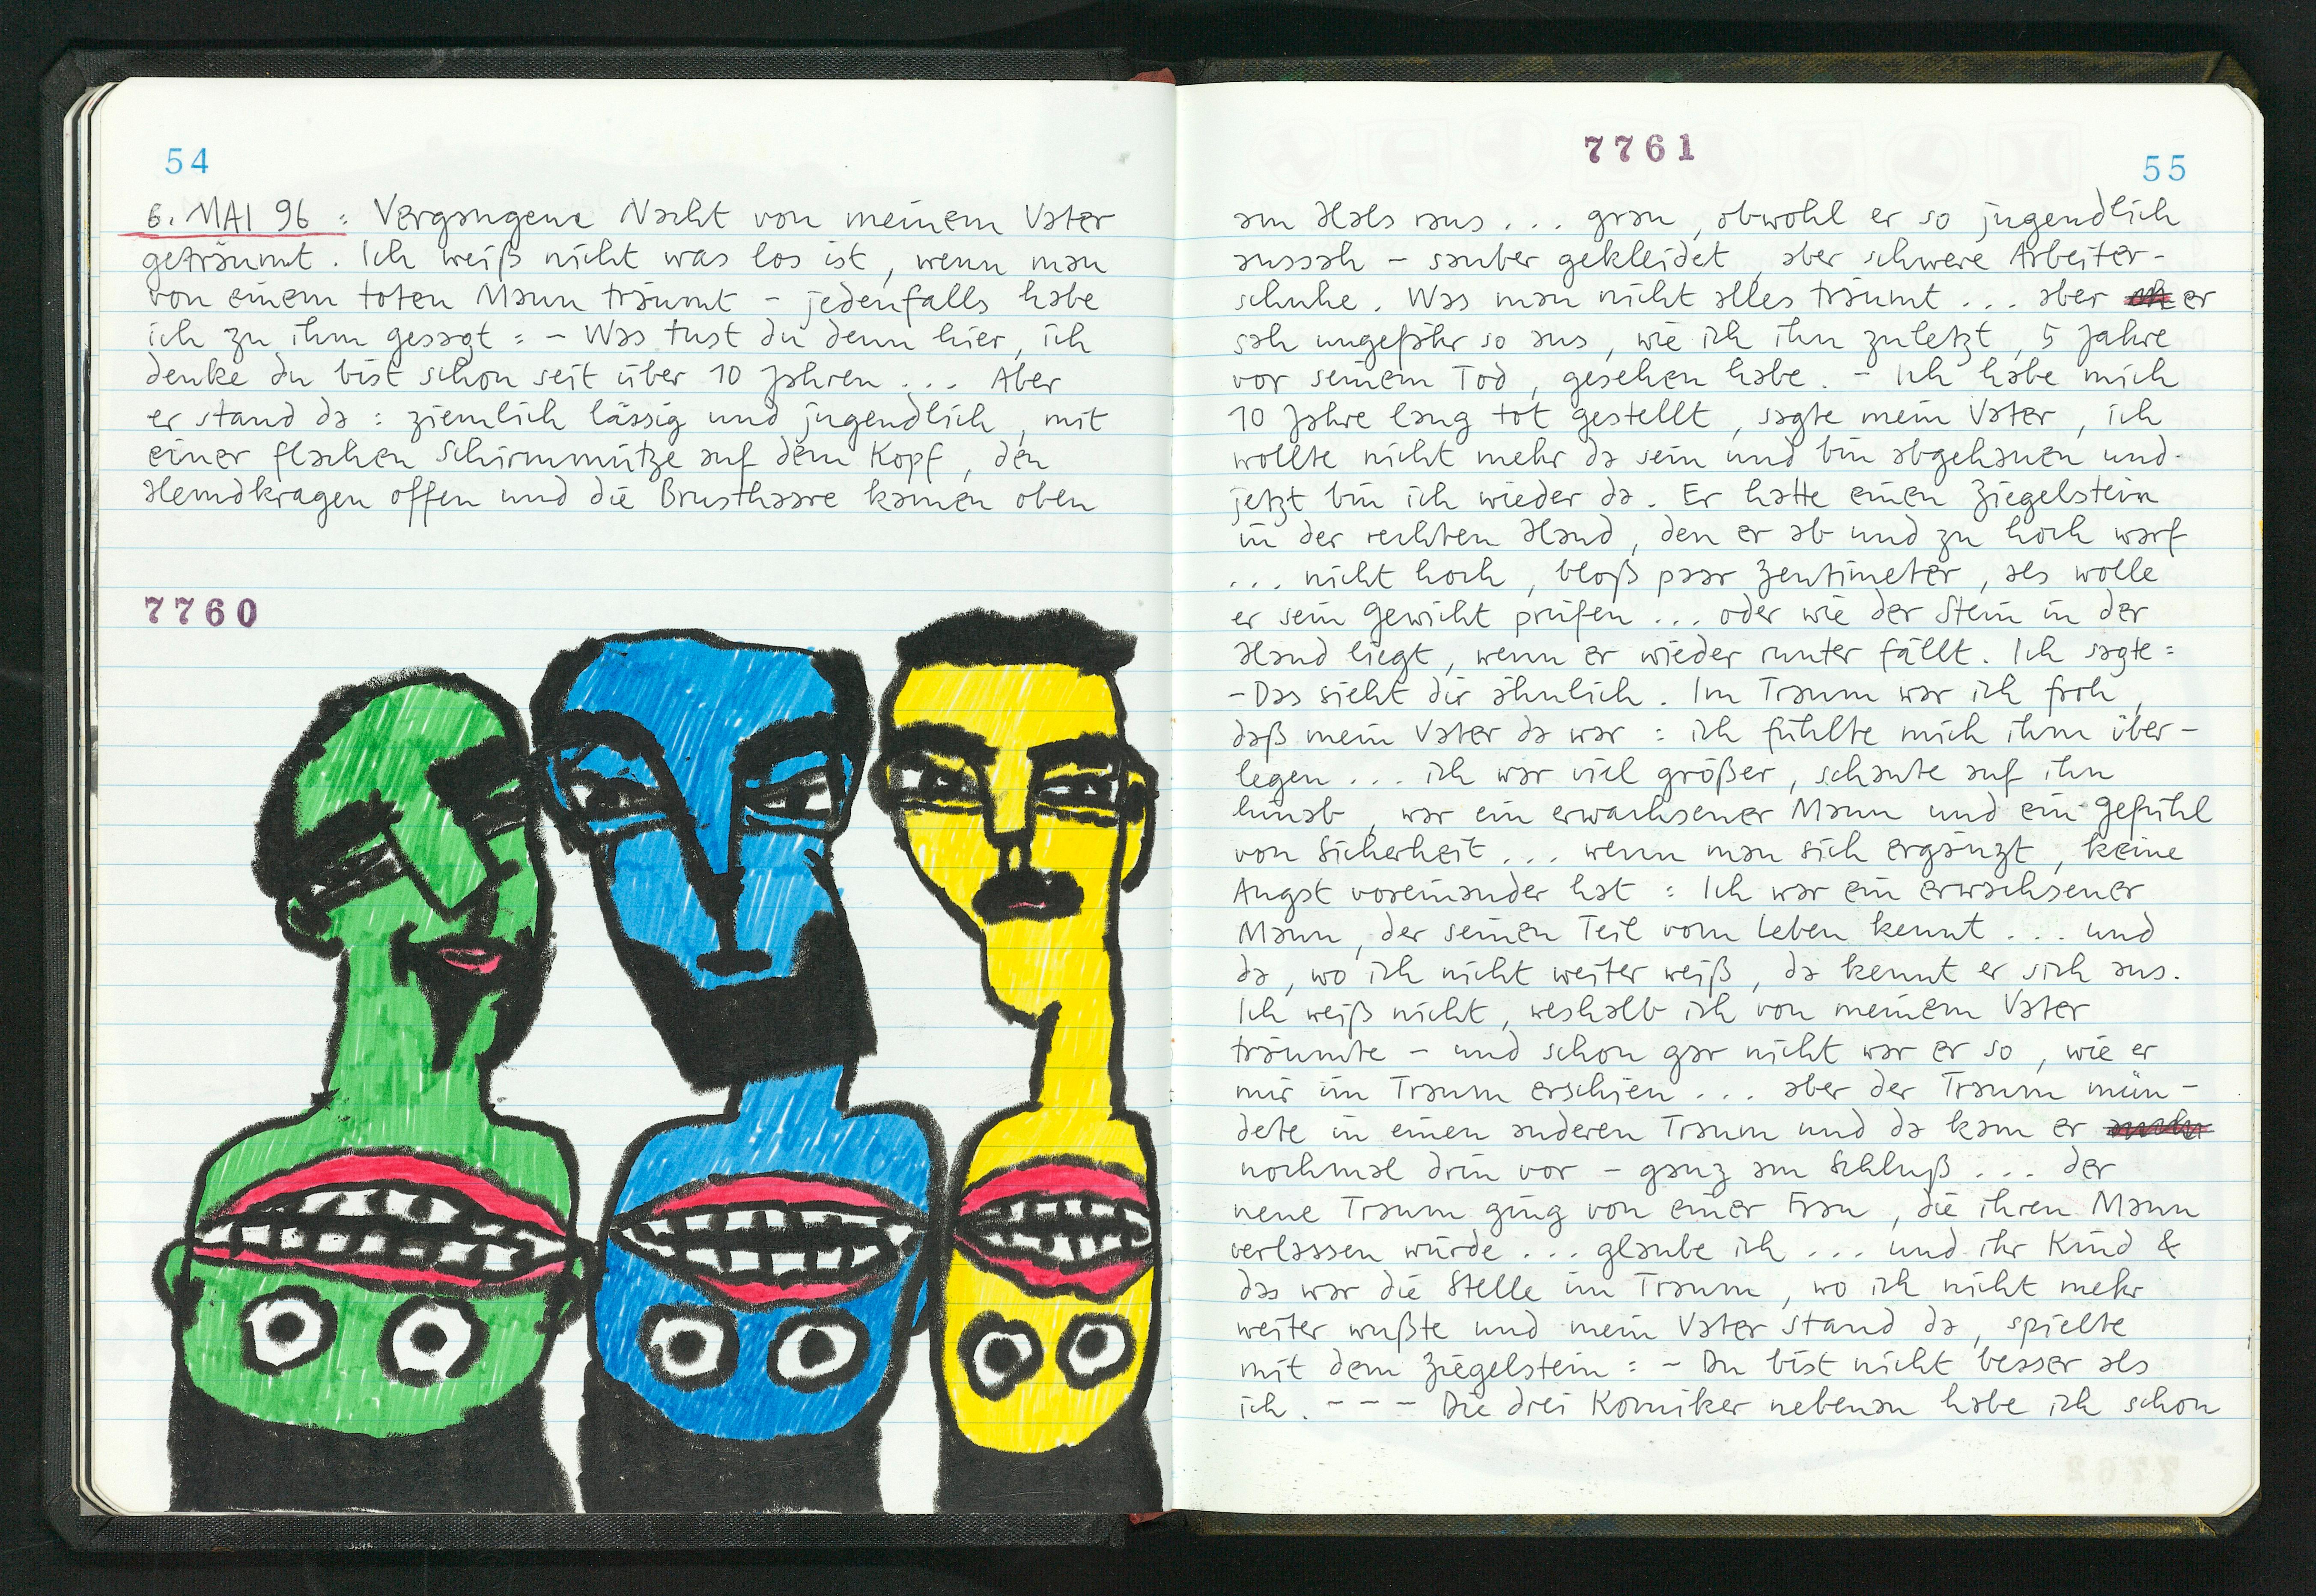 54
6. MAI 96 : Vergangene Nacht von meinem Vater
geträumt. Ich weiß nicht was los ist, wenn man
von einem toten Mann träumt - jedenfalls habe
ich zu ihm gesagt : - Was tust du denn hier, ich
denke du bist schon seit über 10 Jahren ... Aber
er stand da : ziemlich lässig und jugendlich, mit
einer flachen Schirmmütze auf dem Kopf, den
Hemdkragen offen und die Brusthaare kamen oben
7760
7761
55
am Hals raus ... grau, obwohl er so jugendlich
aussah - sauber gekleidet, aber schwere Arbeiter-
schuhe. Was man nicht alles träumt ... aber er
sah ungefähr so aus, wie ich ihn zuletzt, 5 Jahre
vor seinem Tod, gesehen habe. - Ich habe mich
10 Jahre lang tot gestellt, sagte mein Vater, ich
wollte nicht mehr da sein und bin abgehauen und
jetzt bin ich wieder da. Er hatte einen Ziegelstein
in der rechten Hand, den er ab und zu hoch warf
... nicht hoch, bloß paar Zentimeter, als wolle
er sein Gewicht prüfen ... oder wie der Stein in der
Hand liegt, wenn er wieder runter fällt. Ich sagte :
- Das sieht dir ähnlich. Im Traum war ich froh,
daß mein Vater da war : ich fühlte mich ihm über-
legen ... ich war viel größer, schaute auf ihn
hinab, war ein erwachsener Mann und ein Gefühl
von Sicherheit ... wenn man sich ergänzt, keine
Angst voreinander hat : Ich war ein erwachsener
Mann, der seinen Teil vom Leben kennt ... und
da, wo ich nicht weiter weiß, da kennt er sich aus.
Ich weiß nicht, weshalb ich von meinem Vater
träumte - und schon gar nicht war er so, wie er
mir im Traum erschien ... aber der Traum mün-
dete in einen anderen Traum und da kam er
nochmal drin vor - ganz am Schluß ... der
neue Traum ging von einer Frau, die ihren Mann
verlassen würde ... glaube ich ... und ihr Kind &
das war die Stelle im Traum, wo ich nicht mehr
weiter wußte und mein Vater stand da, spielte
mit dem Ziegelstein : - Du bist nicht besser als
ich. - - - Die drei Komiker nebenan habe ich schon